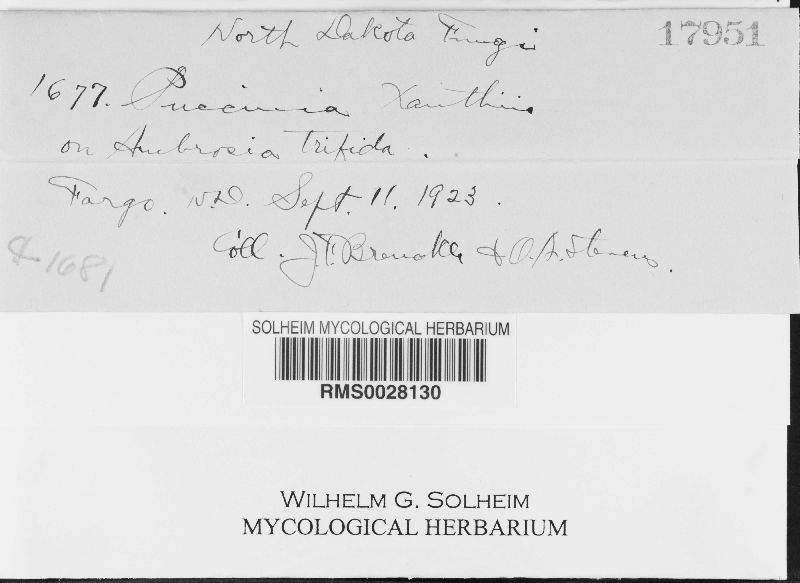 North Dakota Fungi
17951
1677. Puccinia Xanthii.
on Ambrosia trifida.
Fargo. N.D. Sept. 11. 1923.
Coll. J.F. Brenckle & O.A. Stevens.
& 1681
SOLHEIM MYCOLOGICAL HERBARIUM
RMS0028130
WILHELM G. SOLHEIM
MYCOLOGICAL HERBARIUM